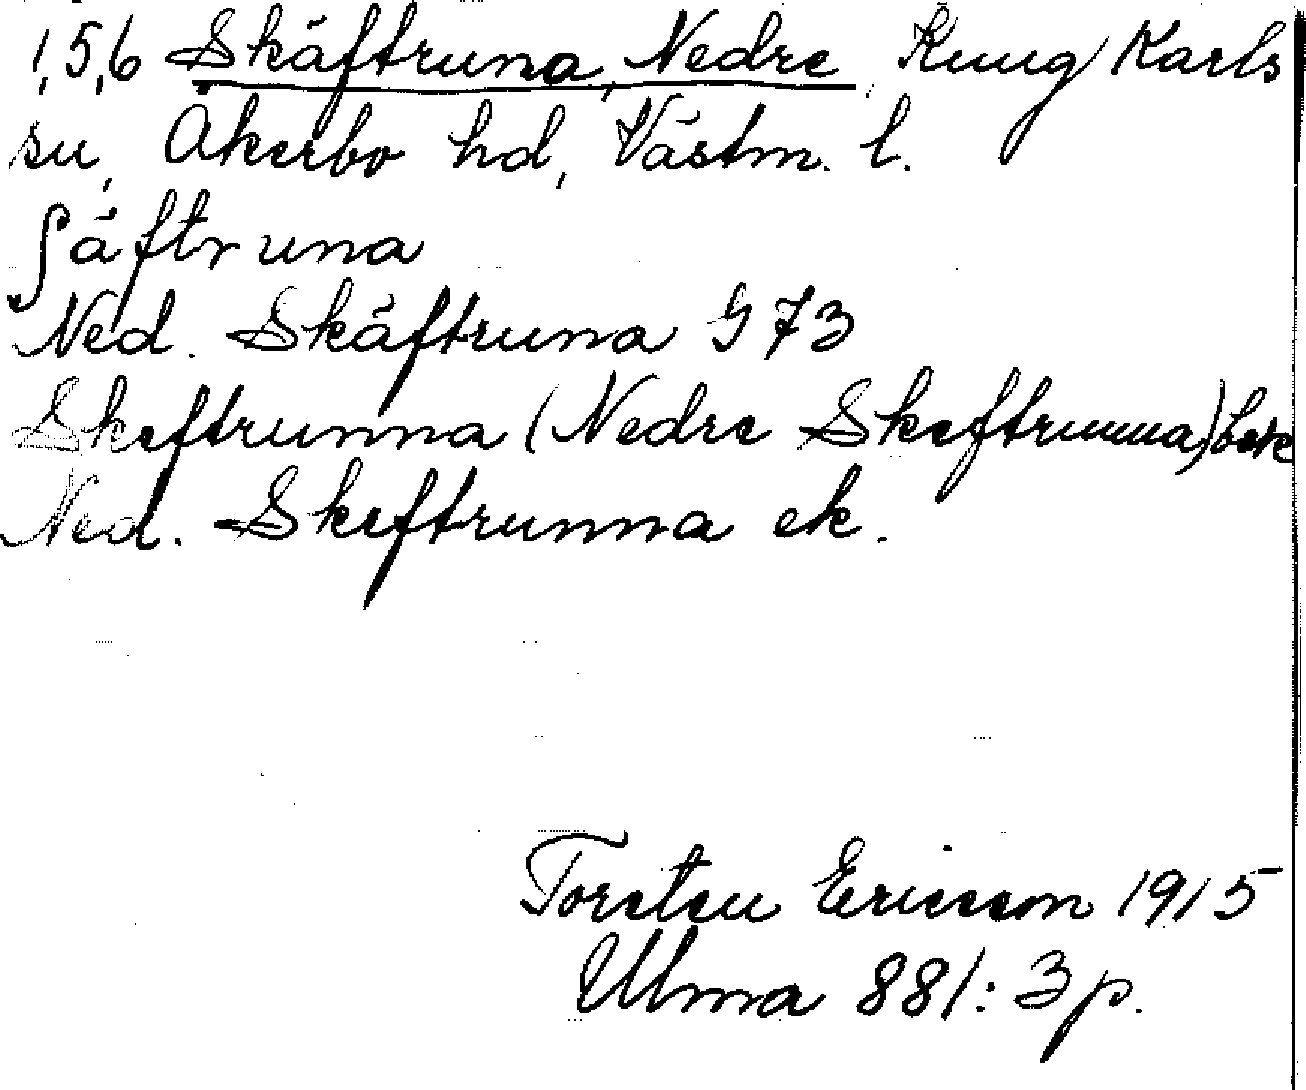 1,5,6 Skäftruna, Nedre, Kung Karls
sn, Åkerbo hd, Västm. l.
ʃäftruna
Ned. Skäftruna G 73
Skeftrunna (Nedre Skeftrunna)
Ned. Skeftrunna ek.
Torsten Ericsson 1915
Ulma 881:3 p.